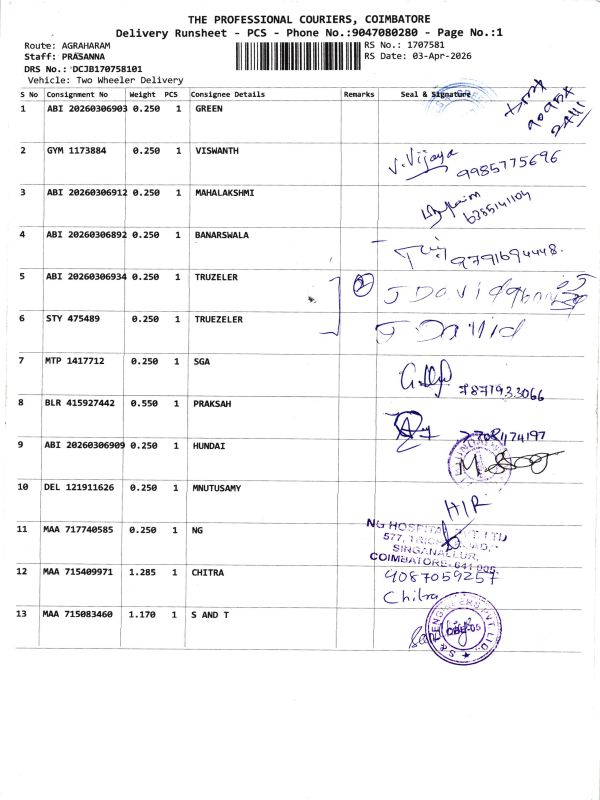 THE PROFESSIONAL COURIERS, COIMBATORE
Delivery Runsheet - PCS - Phone No.:9047080280 - Page No.:1
Route: AGRAHARAM
RS No.: 1707581
Staff: PRASANNA
RS Date: 03-Apr-2026
DRS No.: DCJB170758101
Vehicle: Two Wheeler Delivery
S No Consignment No Weight PCS Consignee Details Remarks Seal & Signature
1 ABI 20260306903 0.250 1 GREEN
2 GYM 1173884 0.250 1 VISWANTH V. Vijaya 9985775696
3 ABI 20260306912 0.250 1 MAHALAKSHMI 6385141104
4 ABI 20260306892 0.250 1 BANARSWALA 9791694448.
5 ABI 20260306934 0.250 1 TRUZELER 2 J David
6 STY 475489 0.250 1 TRUEZELER J David
7 MTP 1417712 0.250 1 SGA 7871933066
8 BLR 415927442 0.550 1 PRAKSAH
9 ABI 20260306909 0.250 1 HUNDAI
10 DEL 121911626 0.250 1 MNUTUSAMY H/R
11 MAA 717740585 0.250 1 NG
NG HOSPITAL PVT. LTD
577, ROAD,
SINGANALLUR,
COIMBATORE- 641 005.
12 MAA 715409971 1.285 1 CHITRA 9087059257
Chitra
13 MAA 715083460 1.170 1 S AND T